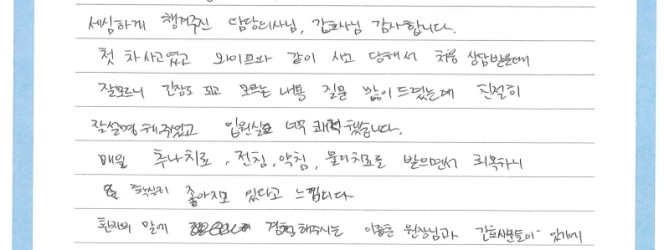 세심하게 챙겨주신 담당의사님, 간호사님 감사합니다.
첫 차사고였고 와이프와 같이 사고 당해서 처음 상담받는데
잘모르니 긴장도 되고 모르는 내용 질문 많이 드렸는데 친절히
잘설명 해주었고 입원실도 너무 쾌적 했습니다.
매일 추나치료, 전침, 약침, 물리치료를 받으면서 회복하니
좋아지고 있다고 느낍니다
환자의 말에 경청해주시는 원장님과 간호사분들이 있기에